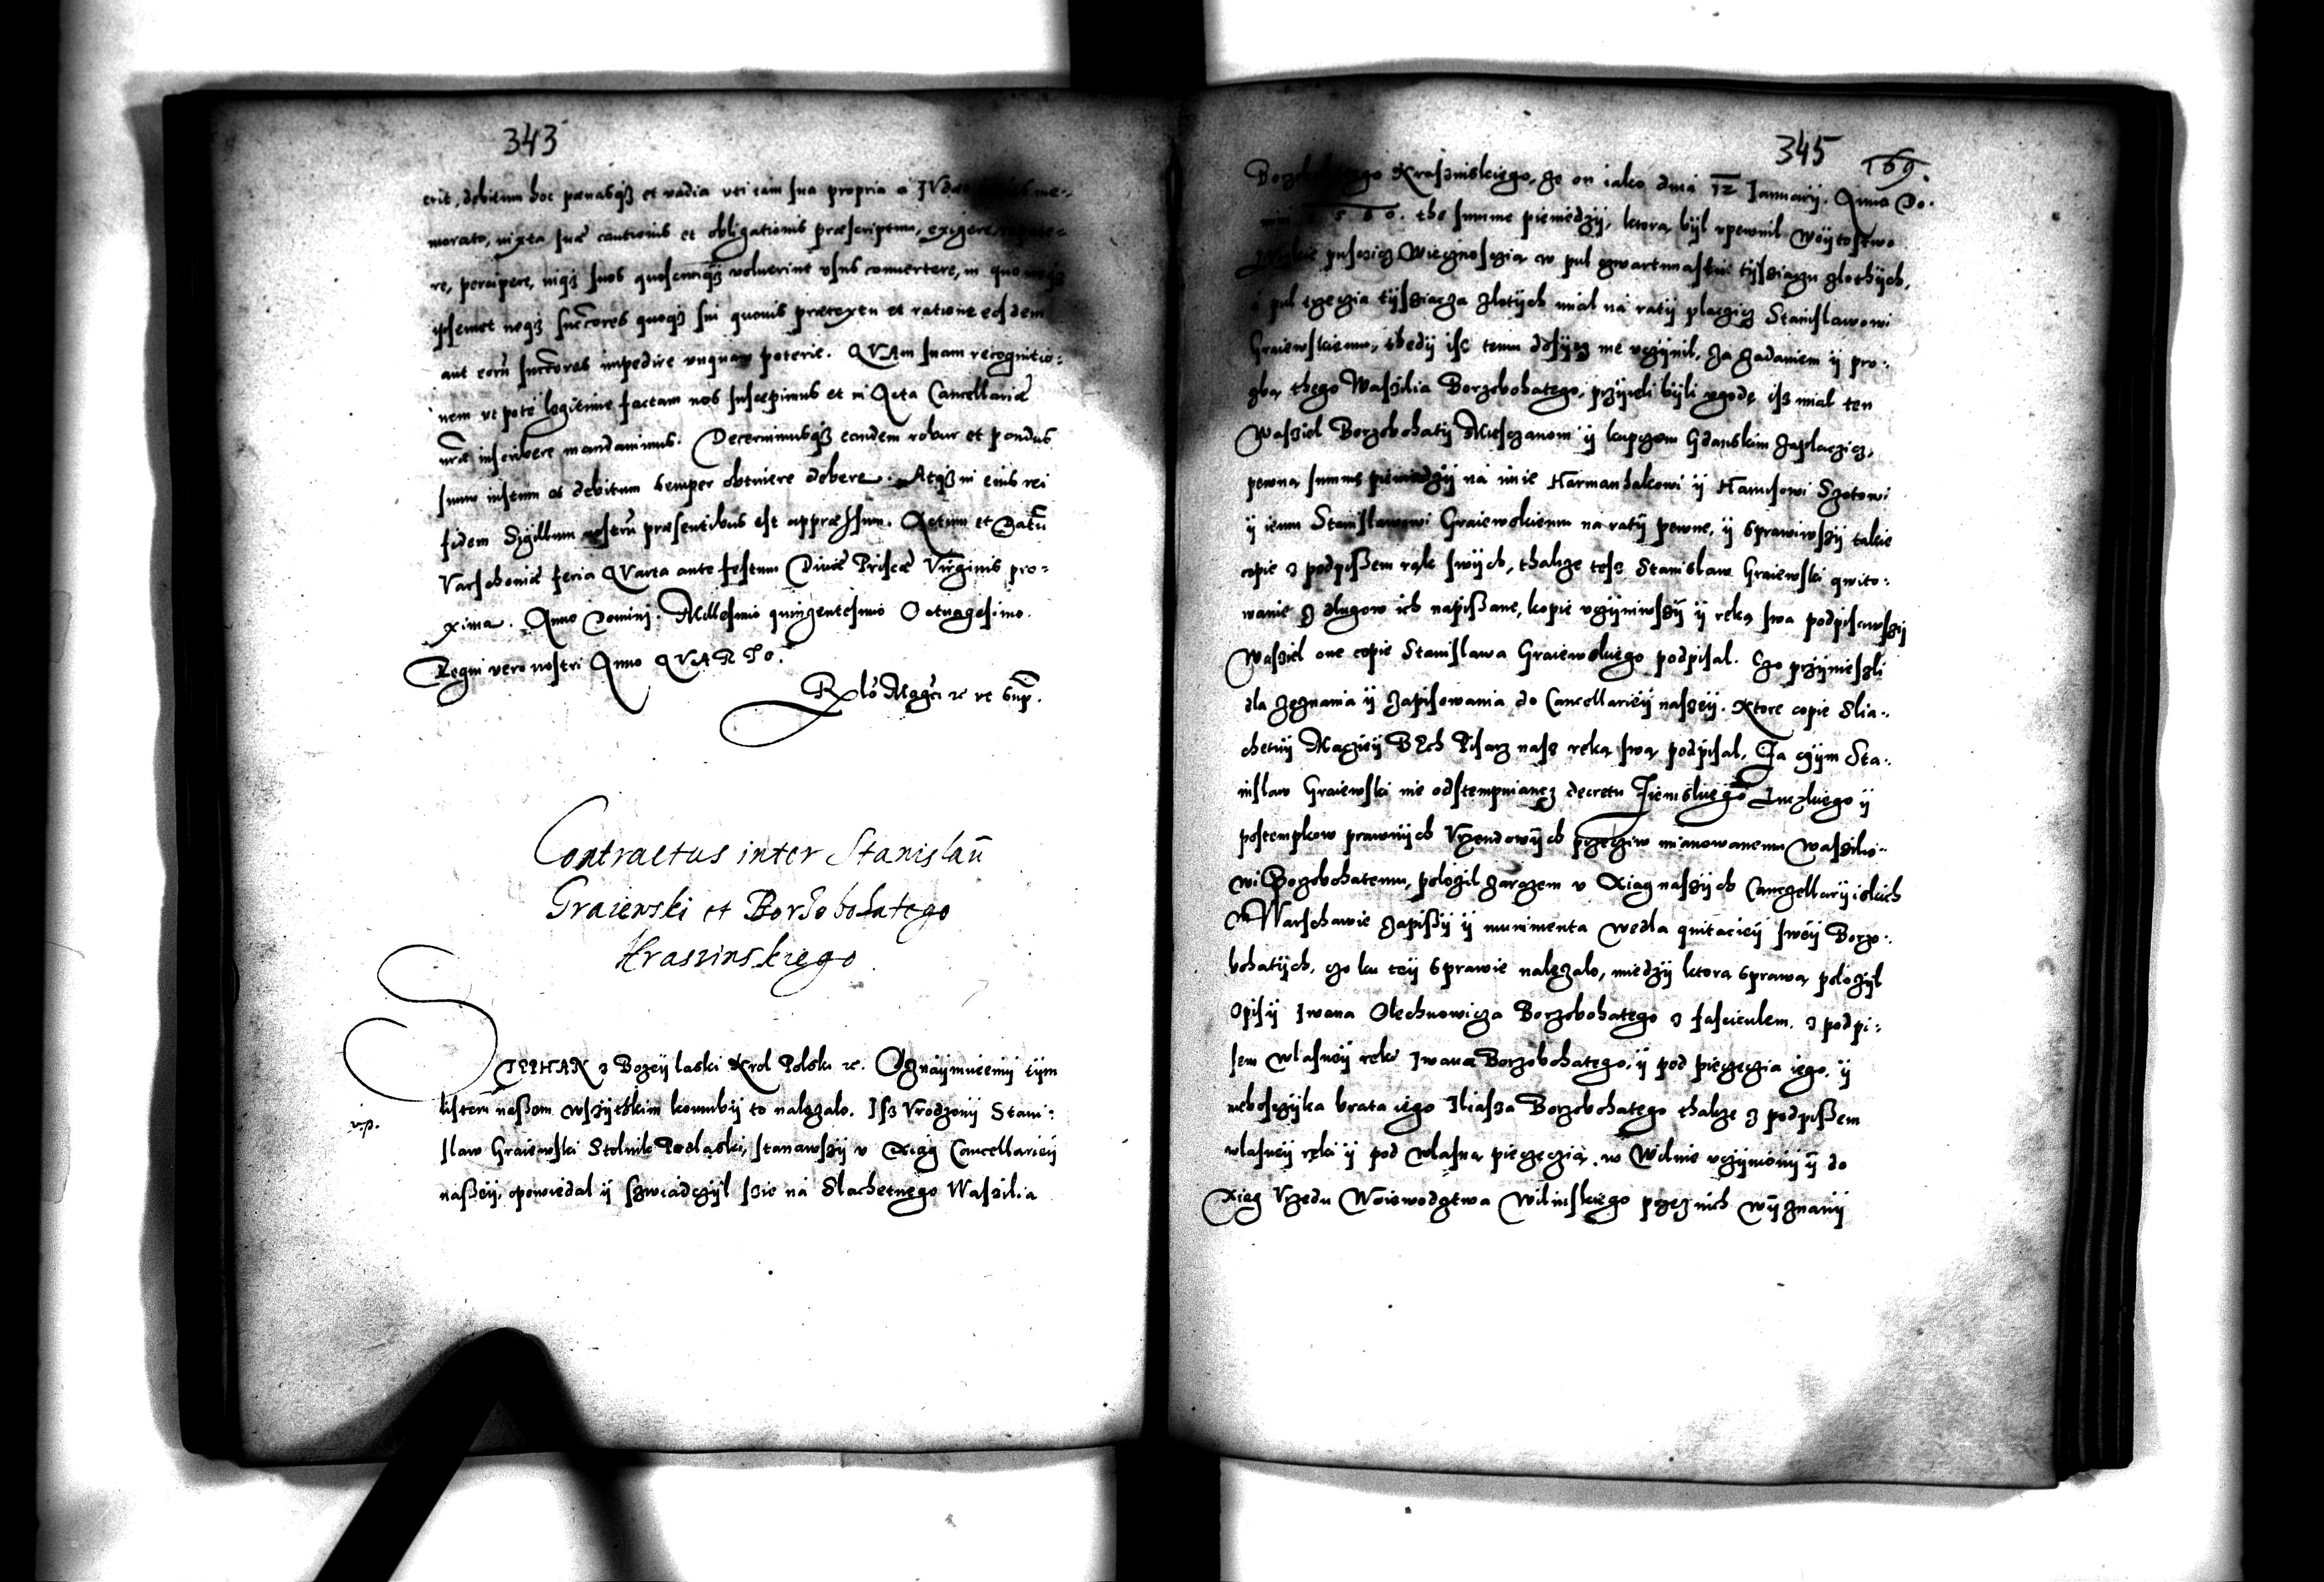 343
erit, debitum hoc pœnasqȝ et vadia vti iam sua propria a me-
morato, iuxta suæ cautionis et obligationis præscriptum, exigere, repete-
re, percipere, inqȝ suos quoscunqȝ voluerint vsus conuertere, in quo neqȝ
ipsemet neqȝ succ̃ores quoqȝ sui quouis prætextu et ratione eosdem
aut eorũ succ̃ores impedire vnquam poterit. QVAm suam recognitio-
nem vt pote legitime factam nos suscepimus et in Acta Cancellariæ
nr̃æ inscribere mandauimus. Decernimusqȝ eandem robur et pondus
suum iustum et debitum semper obtinere debere. Atqȝ in eius rei
fidem Sigillum nostrũ præsentibus est appræssum. Actum et Datũ
Varschouiæ feria QVarta ante festum Diuæ Priscæ Virginis pro-
xima. Anno Domini. Millesimo quingentesimo Octuagesimo.
Regni vero nostri Anno QVARTO.
Relõ Mag̃ci ꝛc vt suꝑ.
Contractus inter Stanislaũ
Graiewski et Borzobohatego
Krassinskiego
STEPHAN z Bozey laski Krol Polski ꝛc. Oznaÿmuiemÿ tÿm
listem naßem wszÿtkim komubÿ to nalezalo. Isz Vrodzonÿ Stani-
v.p.
slaw Graiewski Stolnik Podlaski, stanawszÿ v Xiąg Cancellarieÿ
naßeÿ, opowiedal ÿ szwiadczÿl szie na Slachetnego Waszilia
345
169.
Borzobohatego Kraszinskiego, ze on iako dnia 12 Januarÿ. Anno Do-
mini 1560. tho summe pieniedzÿ, ktorą bÿl vpewnil Woÿtostwo
pusczicz Wiecznosczią w pul czwartunastu tÿsziączu zlothÿch,
a pul trzeczia tÿsziącza zlotÿch mial na ratÿ placzicz Stanislawowi
Graiewskiemu, thedÿ isz temu dosÿcz nie vczÿnil, za ządaniem ÿ pro-
zbą thego Waszilia Borzobohatego, przÿieli bÿli vgodę, isz mial ten
Wasziel Borzobohatÿ Miesczanom ÿ kupczom Gdanskim zaplaczicz,
pewną summę pieniedzÿ na imie Harmanhakowi ÿ Hanusowi Szotowi
ÿ iemu Stanislawowi Graiewskiemu na ratÿ pewne, ÿ sprawiwszÿ takie
copie z podpißem rąk swÿch, thakze tesz Stanislaw Graiewski qwito-
wanie z dlugow ich napißane, kopie vczÿniwszÿ ÿ ręką swą podpisawszÿ
Wasziel one copie Stanislawa Graiewskiego podpisal. Czo przÿnieszli
dla zeznania ÿ zapisowania do Cancellarieÿ naszeÿ. Ktore copie Slia-
chetnÿ Macziÿ Bech Pisarz nasz ręką swą podpisal. Za czÿm Sta-
nislaw Graiewski nie odstempuiancz decretu Ziemskiego Luczkiego ÿ
postempkow prawnÿch Vrzendowÿch przecziw mianowanemu Waszilio-
wi Borzobohatemu, polozil zarazem v Xiąg naszÿch Canczellarÿiskich
w Warschawie zapißÿ ÿ munimenta wedla quitacieÿ sweÿ Borzo-
bohatÿch, czo ku teÿ sprawie nalezalo, miedzÿ ktorą sprawą polozÿl
Opisÿ Iwana Olechnowicza Borzobohatego z fasciculem, z podpi-
sem wlasneÿ reki Iwana Borzobohatego, ÿ pod pieczęczią iego, ÿ
nebosczÿka brata iego Iliasza Borzobohatego thakze z podpißem
wlasneÿ ręki ÿ pod wlasną pieczęczią, w Wilnie vczÿnionÿ ÿ do
Xiąg Vrzedu Woiewodztwa Wilinskiego przez nich wÿznanÿ